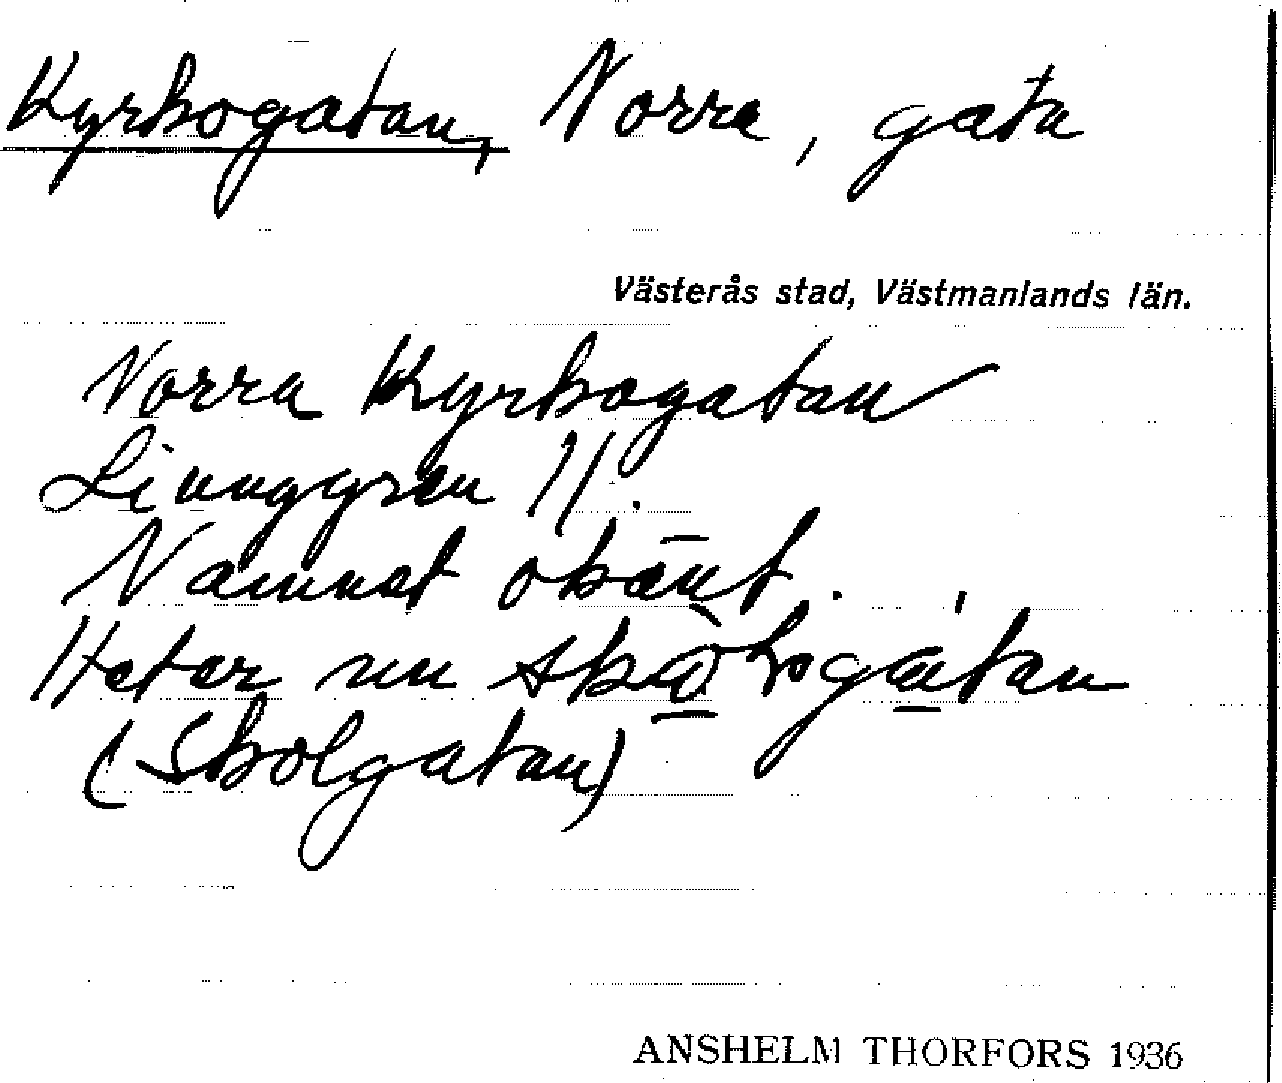 Kyrkogatan, Norra, gata
Västerås stad, Västmanlands län.
Norra Kyrkogatan
Linnggren 11.
Namnet okänt.
Heter nu
(Skolgatan)
ANSHELM THORFORS 1936